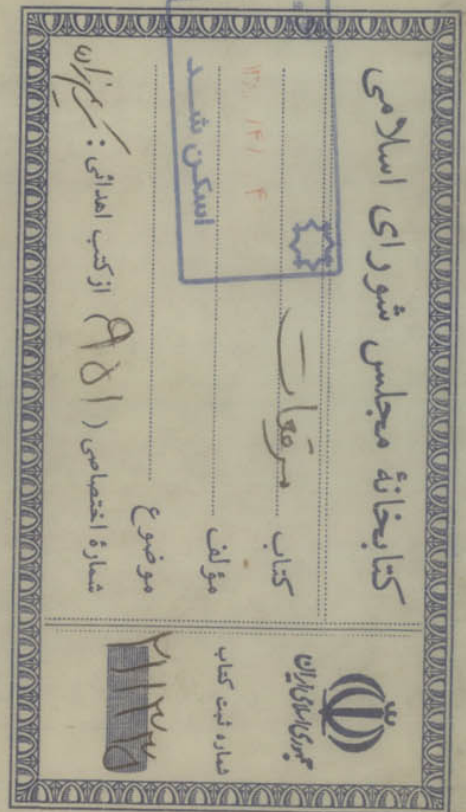 کتابخانهٔ مجلس شورای اسلامی
کتاب مرقعات
مؤلف
موضوع
شمارهٔ اختصاصی ( ۹۵۱ ) از کتب اهدائی :
جمهوری اسلامی ایران
شماره ثبت کتاب
اسکن شد